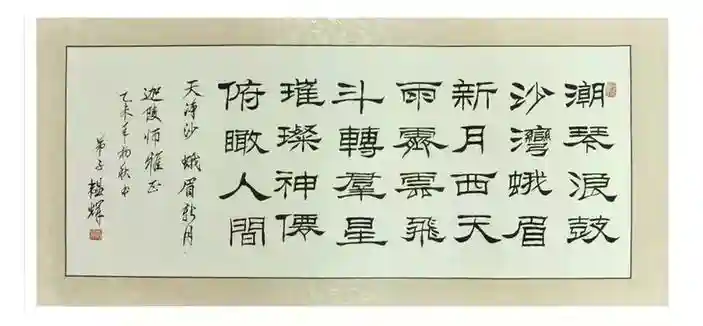 潮琴浪鼓
沙灣蛾眉
新月西天
雨霽雲飛
斗轉羣星
璀璨神僊
俯瞰人間
天淨沙 蛾眉新月
迦陵师雅正
乙未年初秋
弟子